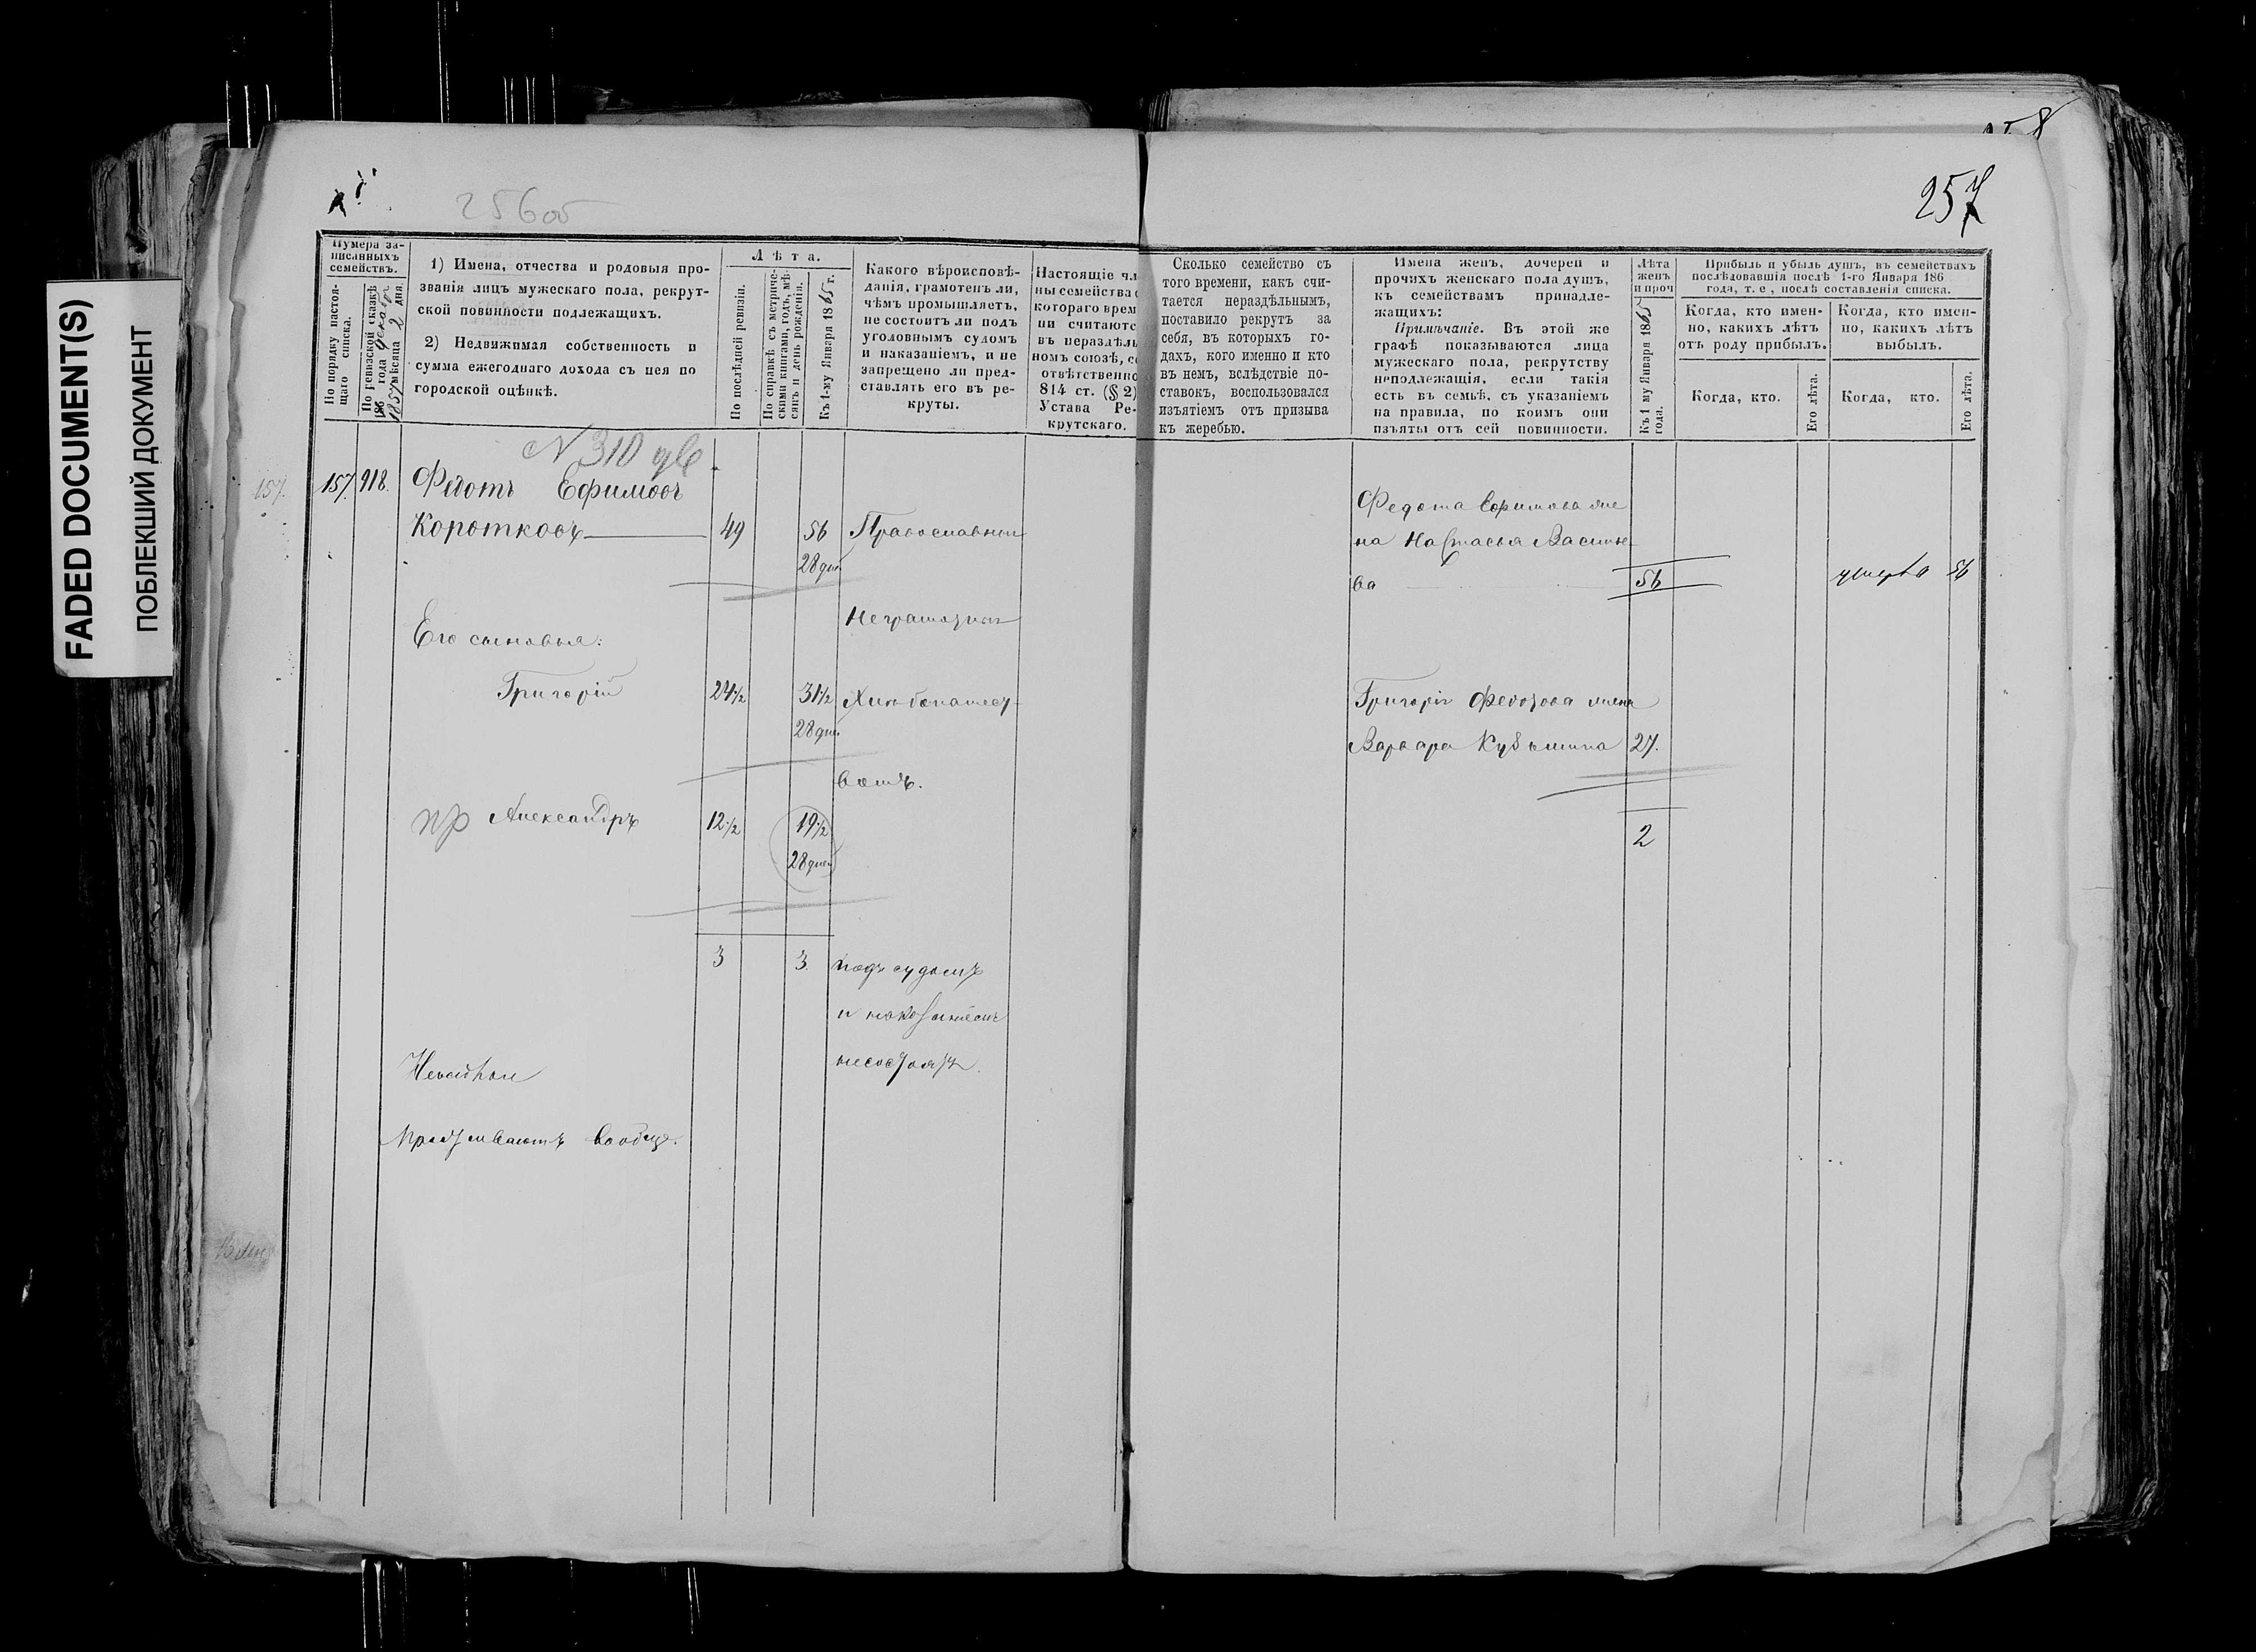 FADED DOCUMENT(S)
ПОБЛЕКШИЙ ДОКУМЕНТ
256об
257
Нумера за-
писанныхъ
семействъ.
По порядку настоя-
щаго списка.
По ревизской сказкѣ
186 года декабр
1857 мѣсяца 2 дня.
1) Имена, отчества и родовыя про-
званія лицъ мужескаго пола, рекрут-
ской повинности подлежащихъ.
2) Недвижимая собственность и
сумма ежегоднаго дохода съ нея по
городской оцѣнкѣ.
Лѣта.
По послѣдней ревизіи.
По справкѣ съ метриче-
скими книгами, годъ, мѣ-
сяцъ и день рожденія.
Къ 1-му Января 1865 г.
Какого вѣроисповѣ-
данія, грамотенъ ли,
чѣмъ промышляетъ,
не состоитъ ли подъ
уголовнымъ судомъ
и наказаніемъ, и не
запрещено ли пред-
ставлять его въ ре-
круты.
Настоящіе чл
ны семейства с
котораго врем
ни считаютс
въ нераздѣль
номъ союзѣ, со
отвѣтственно
814 ст. (§ 2)
Устава Ре-
крутскаго.
Сколько семейство съ
того времени, какъ счи-
тается нераздѣльнымъ,
поставило рекрутъ за
себя, въ которыхъ го-
дахъ, кого именно и кто
въ немъ, вслѣдствіе по-
ставокъ, воспользовался
изъятіемъ отъ призыва
къ жеребью.
Имена женъ, дочерей и
прочихъ женскаго пола душъ,
къ семействамъ принадле-
жащихъ:
Примѣчаніе. Въ этой же
графѣ показываются лица
мужескаго пола, рекрутству
неподлежащія, если такія
есть въ семьѣ, съ указаніемъ
на правила, по коимъ они
изъяты отъ сей повинности.
Лѣта
женъ
и проч
Къ 1 му Января 1865
года.
Прибыль и убыль душъ, въ семействахъ
послѣдовавшія послѣ 1-го Января 186
года, т. е., послѣ составленія списка.
Когда, кто имен-
но, какихъ лѣтъ
отъ роду прибылъ.
Когда, кто имен-
но, какихъ лѣтъ
выбылъ.
Когда, кто.
Его лѣта.
Когда, кто.
Его лѣта.
N 310
157. 157 918. Федотъ Ефимовъ
Коротковъ 49 56 Православныи
28 дне
Федота Ефимова же
на Настасья Василье
ва 56 умерла 56
Его сыновья:
Неграмотны
Григорій 24½ 31½ Хлѣбопашест
28 дне
Григорія Федотова жена
Варвара Кузьмина 27.
вомъ.
пр Александръ 12½ 19½
28 дней
2
3 3. подъ судомъ
и наказаніемъ
несостоятъ.
Неимѣютъ
Проживаютъ вообще.